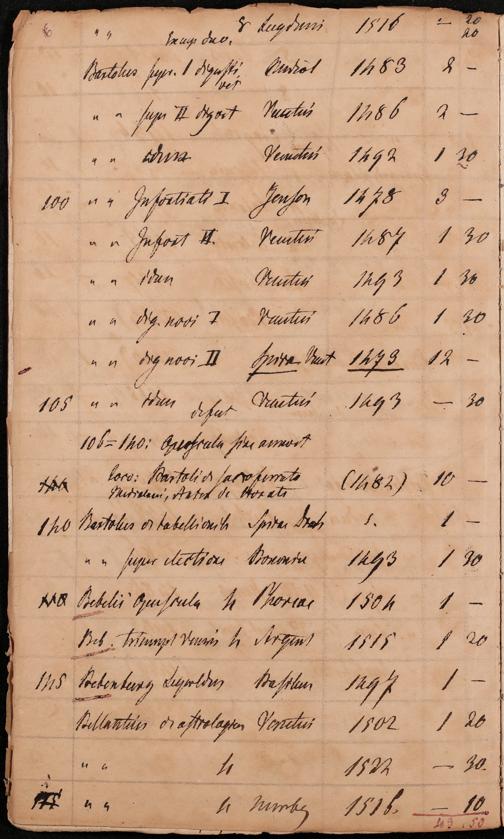 " " 8 Lugduni 1516 — 20
20
Bartolus super I digesti vet 1483 2 —
" " super II digest Venetiis 1486 2 —
" " idem Venetiis 1492 1 30
100 " " Infortiati I Jenson 1478 3 —
" " Infort II. Venetiis 1487 1 30
" " idem Venetiis 1493 1 30
" " dig. novi I Venetiis 1486 1 30
" " dig novi II Spira Venet 1473 12 —
105 " " idem defect Venetiis 1493 — 30
106=140: Opuscula sine annot
loco: Bartoli de Saxoferrato (1482) 10 —
140 Bartolus de tabellionib Spirae Drach s. 1 —
" " super electione Bononiae 1493 1 30
Bebelii Opuscula 4 Phorcae 1504 1 —
Beb. triumph Veneris 4 Argent 1515 1 20
145 Bebenburg Leopoldus Basileae 1497 1 —
Bellantius de astrologia Venetiis 1502 1 20
" " 4 1522 — 30
" " 4 Nurnbg 1516. — 10
49.50